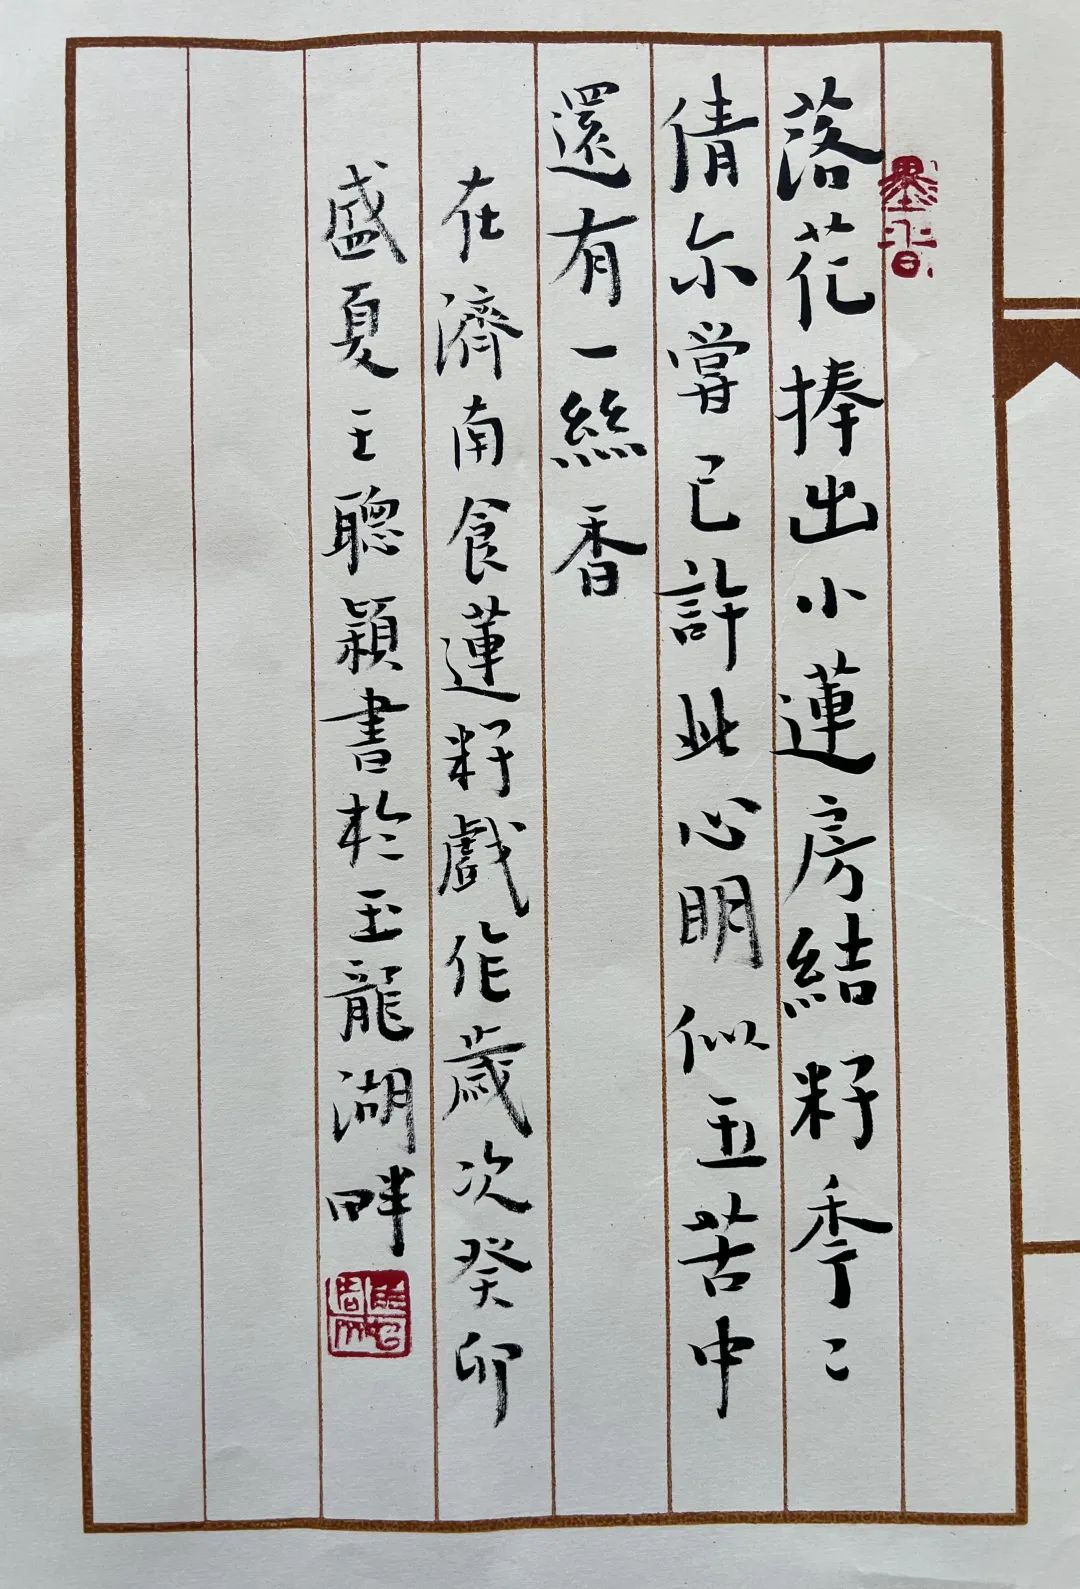 墨香
落花捧出小蓮房結籽季〻
倩尔嘗已許此心明似玉苦中
還有一絲香
在濟南食蓮籽戲作歲次癸卯
盛夏王聰穎書於玉龍湖畔